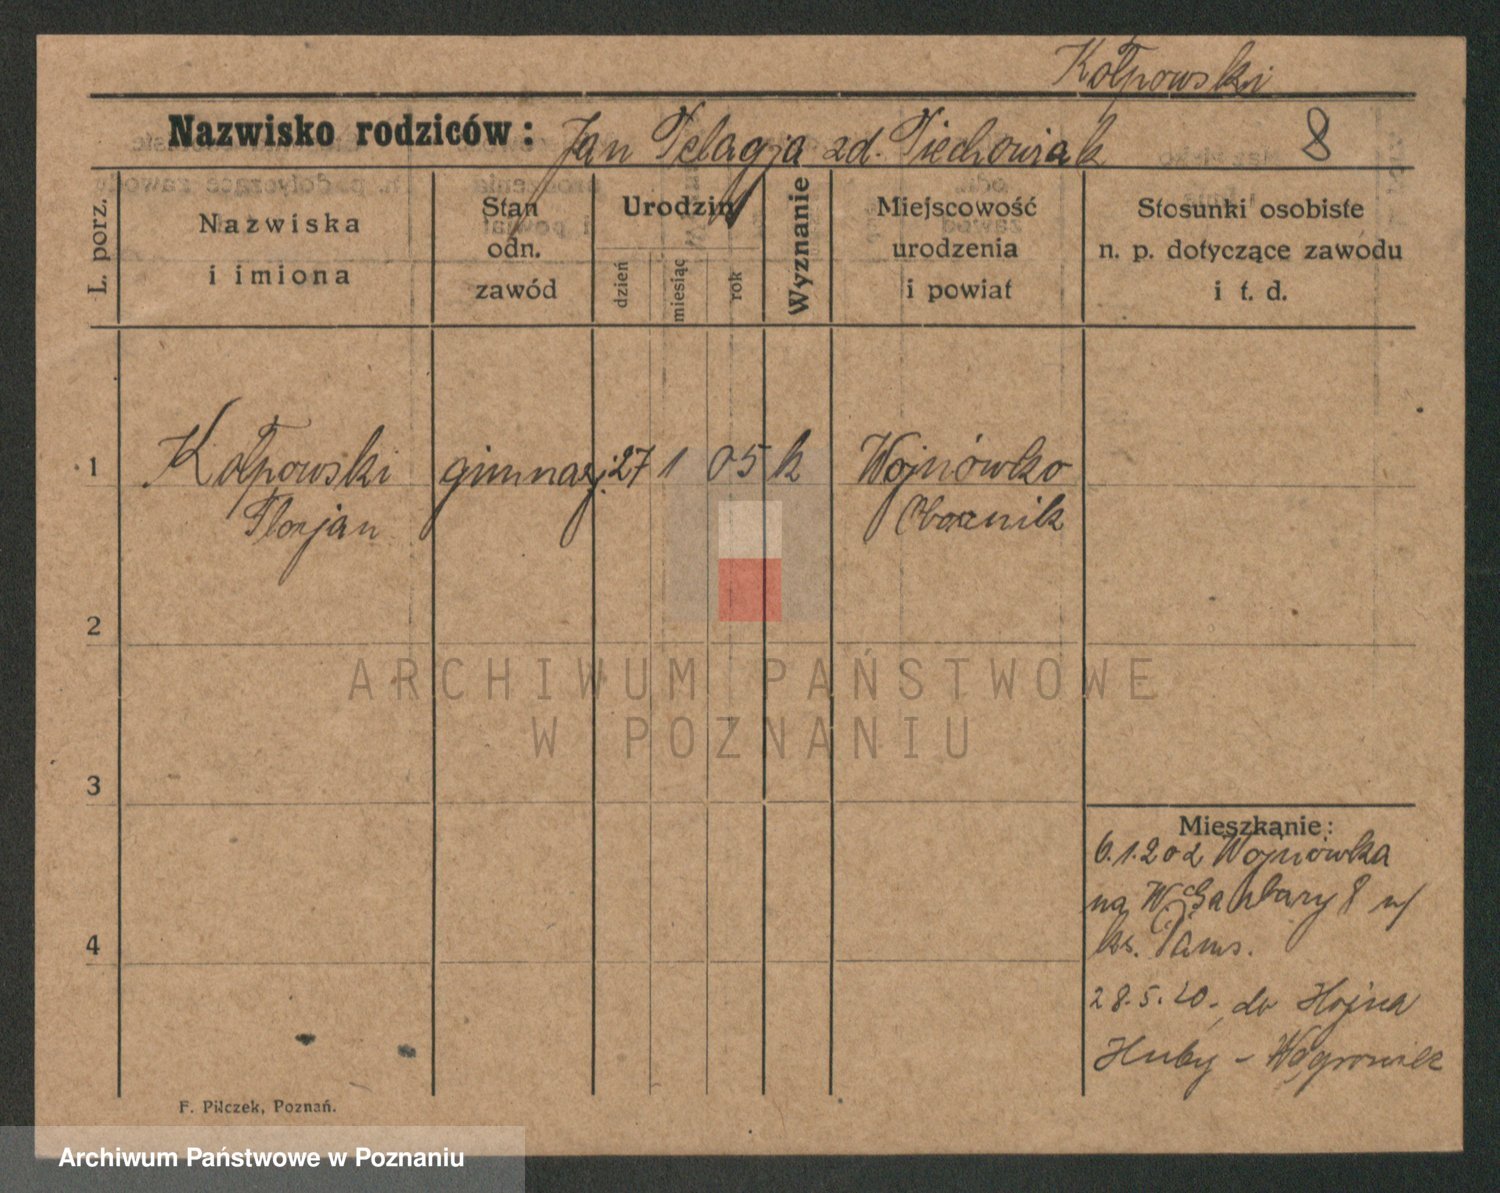 Kołpowski
Nazwisko rodziców: Jan Pelagja zd. Piechowiak 8
L. porz.
Nazwiska
i imiona
Stan
odn.
zawód
Urodzin
dzień
miesiąc
rok
Wyznanie
Miejscowość
urodzenia
i powiat
Stosunki osobiste
n. p. dotyczące zawodu
i t. d.
1 Kołpowski gimnazj. 27 1 05 k Wojnówko
Florjan Obornik
2
3
4
Mieszkanie:
6.1.20 z Wojnówka
na W. Garbary 8 u/
ks. Tams.
28.5.20. do
Huby - Wągrowiec
F. Pilczek, Poznań.
ARCHIWUM PAŃSTWOWE
W POZNANIU
Archiwum Państwowe w Poznaniu